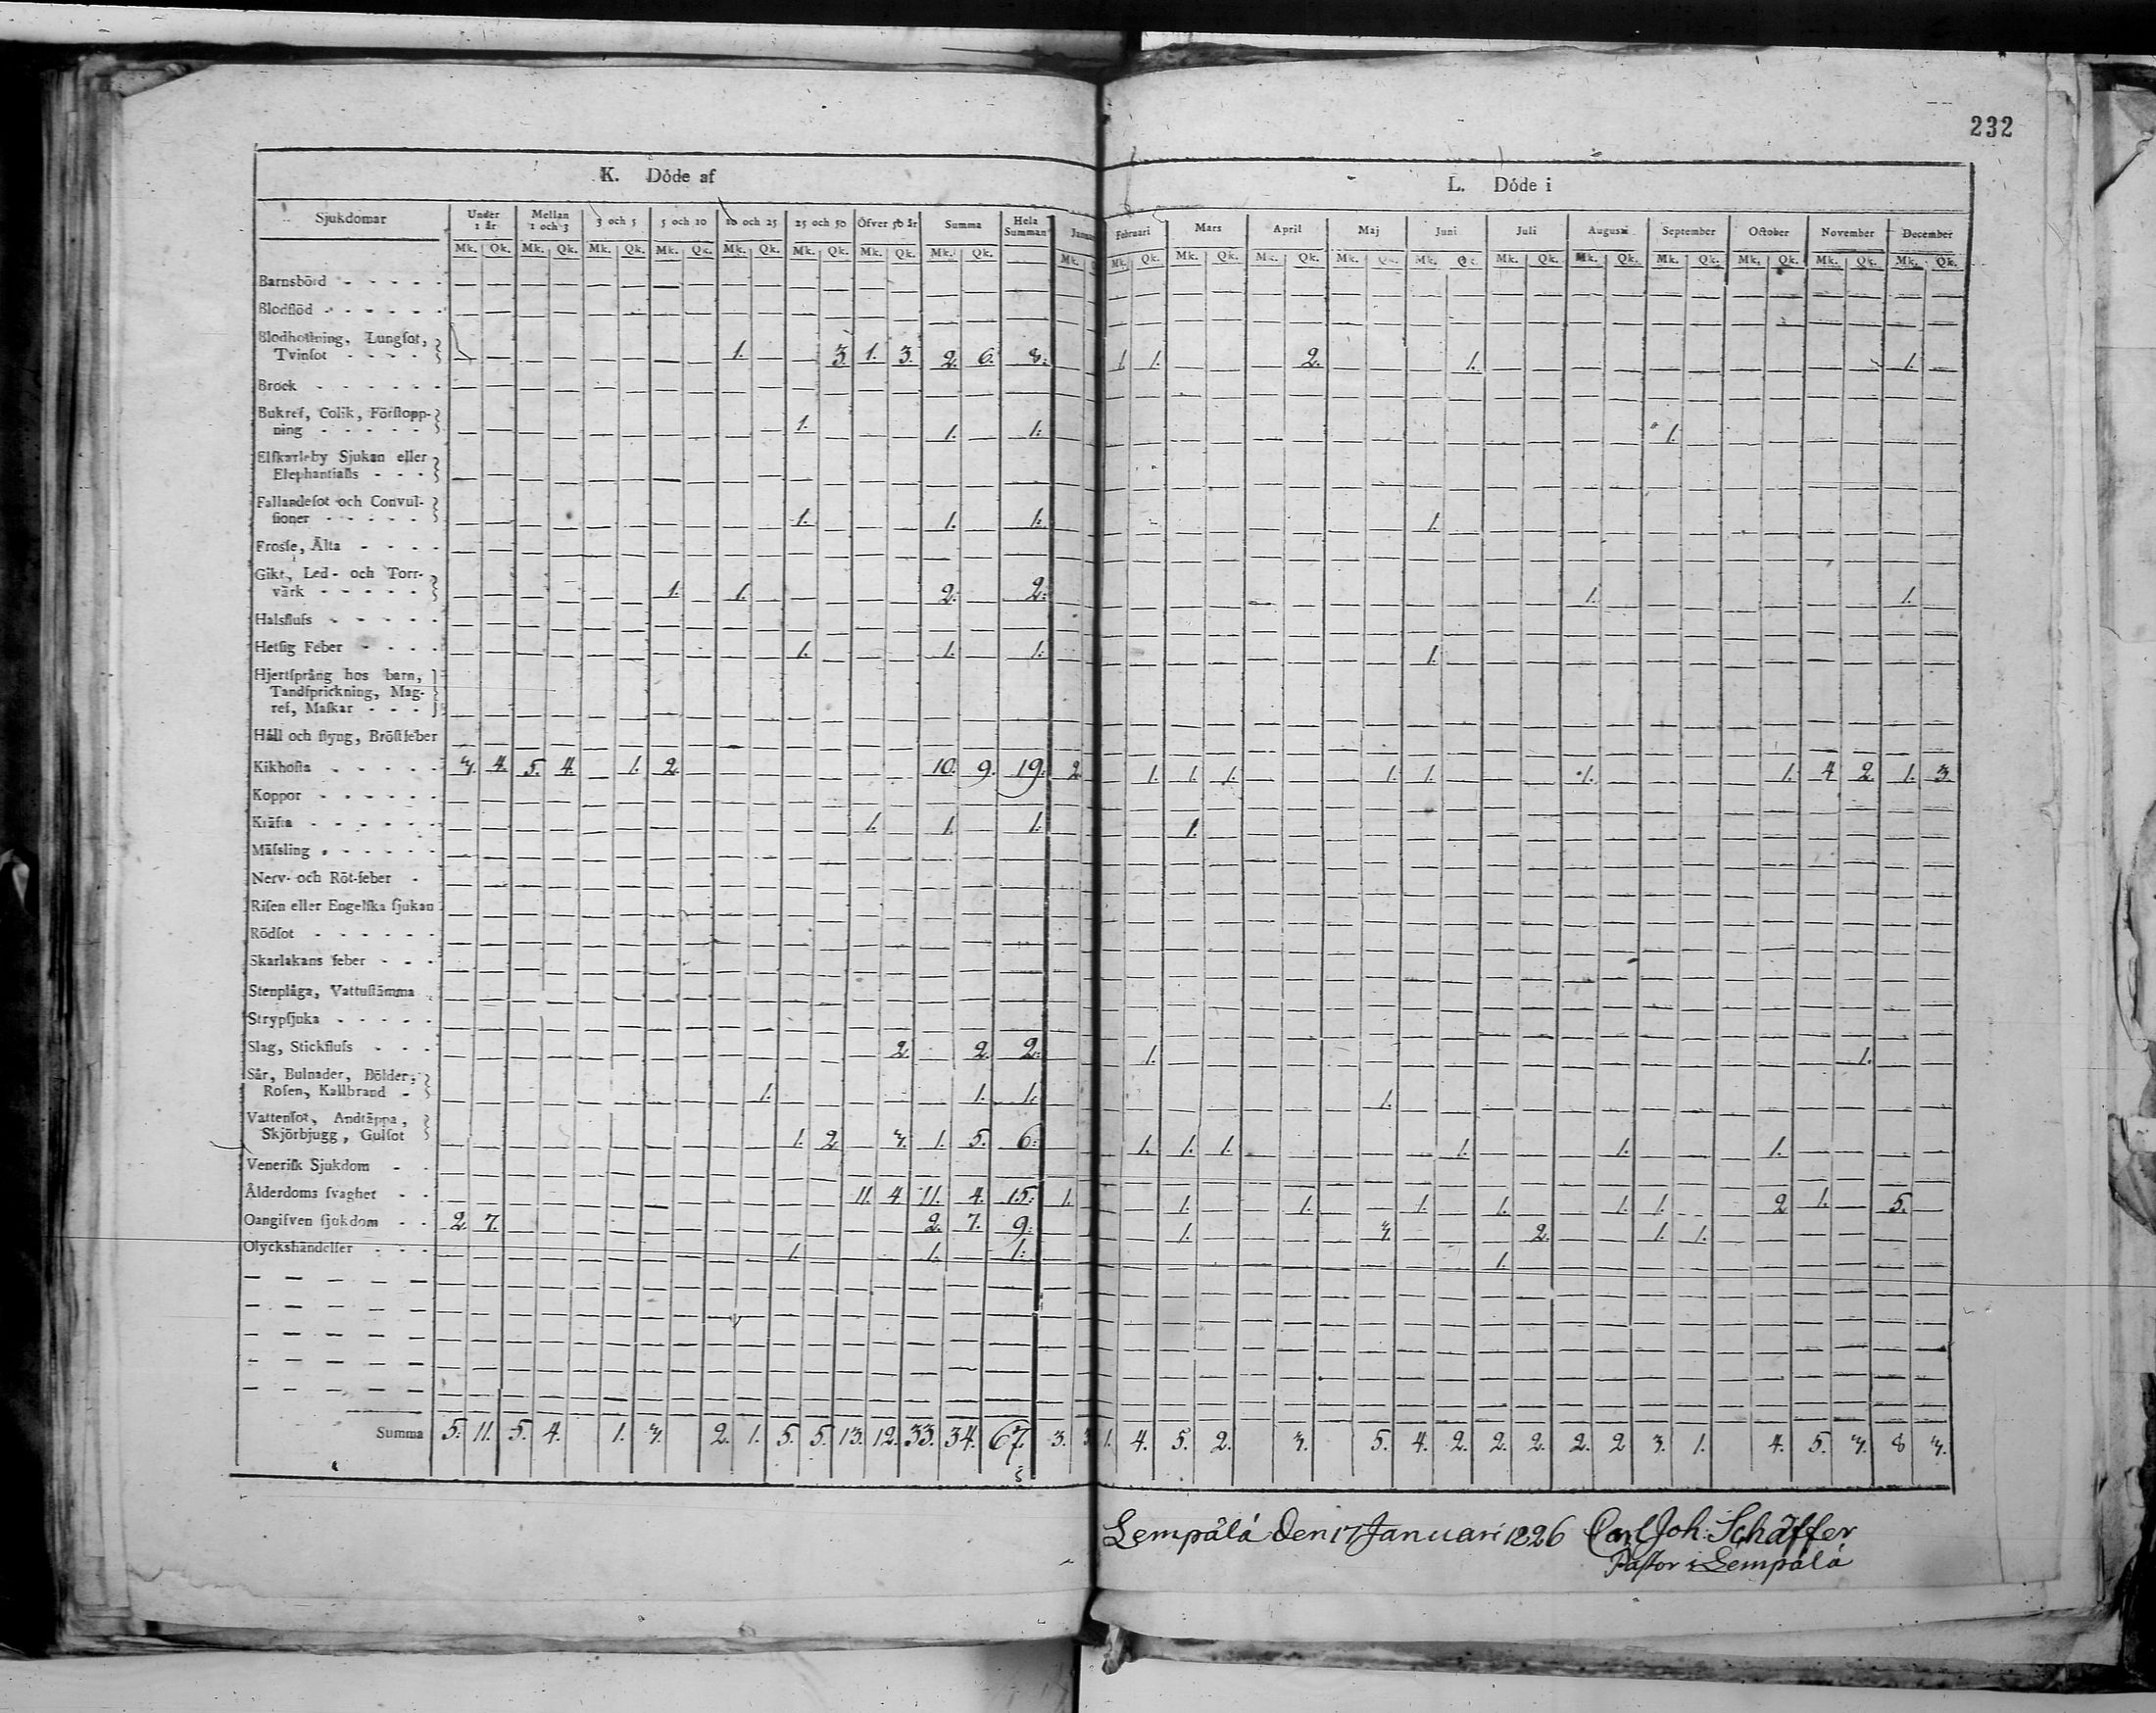 232
K. Döde af
L. Döde i
Sjukdomar Under 1 år Mellan 1 och 3 3 och 5 5 och 10 10 och 25 25 och 50 Öfver 50 år Summa Hela Summan
Februari Mars April Maj Juni Juli Augusti September October November December
Mk. Qk. Mk. Qk. Mk. Qk. Mk. Qk. Mk. Qk. Mk. Qk. Mk. Qk. Mk. Qk. Mk.
Mk. Qk. Mk. Qk. Mk. Qk. Mk. Qk. Mk. Qk. Mk. Qk. Mk. Qk. Mk. Qk. Mk. Qk. Mk. Qk. Mk. Qk.
Barnsbörd - - - - -
Blodflöd - - - - - -
Blodhoſtning, Lungſot,
Tvinſot - - - - 1. 3. 1. 3. 2. 6. 8: 1. 1. 2. 1. 1.
Brock - - - - - -
Bukref, Colik, Förſtopp-
ning - - - - - 1. 1. 1: 1.
Elfkarleby Sjukan eller
Elephantiaſis - - -
Fallandeſot och Convul-
ſioner - - - - - 1. 1. 1: 1.
Frosſe, Älta - - - -
Gikt, Led- och Torr-
värk - - - - - 1. 1. 2. 2: 1. 1.
Halsfluſs - - - - -
Hetſig Feber - - - - 1. 1. 1: 1.
Hjertſprång hos barn,
Tandſprickning, Mag-
ref, Maſkar - - -
Håll och ſtyng, Bröſtfeber
Kikhoſta - - - - - 3. 4. 5. 4. 1. 2. 10. 9. 19: 2. 1. 1. 1. 1. 1. 1. 1. 4 2. 1. 3
Koppor - - - - - -
Kräfta - - - - - - 1. 1. 1: 1.
Mäſsling - - - - - -
Nerv- och Röt-feber -
Riſen eller Engelſka ſjukan
Rödſot - - - - - -
Skarlakans feber - - -
Stenplåga, Vattuſtämma
Strypſjuka - - - - -
Slag, Stickfluſs - - - 2. 2. 2: 1. 1.
Sår, Bulnader, Bölder,
Roſen, Kallbrand - 1. 1. 1. 1.
Vattenſot, Andtäppa,
Skjörbjugg, Gulſot 1. 2. 3. 1. 5. 6: 1. 1. 1. 1. 1. 1.
Veneriſk Sjukdom - -
Ålderdoms ſvaghet - - 11. 4 11. 4. 15: 1. 1. 1. 1. 1. 1. 1. 2 1. 5.
Oangiſven ſjukdom - - 2. 7. 2. 7. 9: 1. 3. 2. 1. 1.
Olyckshändelſer - - - 1. 1. 1: 1.
Summa 5. 11. 5. 4. 1. 3. 2. 1. 5. 5. 13. 12. 33. 34. 67. 3. 1. 4. 5. 2. 3. 5. 4. 2. 2. 2. 2. 2 3. 1. 4. 5. 3. 8 3.
Lempälä den 17 Januari 1826 Carl Joh: Schäffer
Paſtor i Lempälä